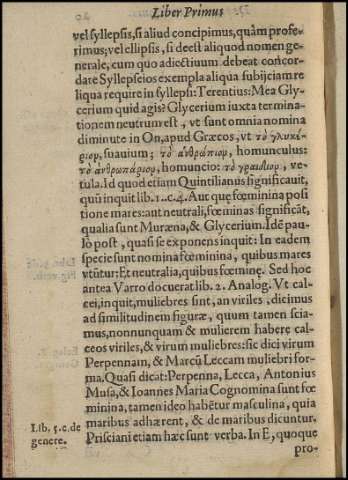 Liber Primus
vel syllepsis, si aliud concipimus, quàm profe-
rimus; vel ellipsis, si deest aliquod nomen ge-
nerale, cum quo adiectiuum debeat concor-
dare Syllepseios exempla aliqua subijciam re
liqua require in syllepsi: Terentius: Mea Gly-
cerium quid agis? Glycerium iuxta termina-
tionem neutrum est, vt sunt omnia nomina
diminute in On, apud Græcos, vt τὸ γλυκέ-
ριον, suauium; τὸ ἀνθρώπιον, homunculus:
τὸ ἀνθρωπάριον, homuncio: τὸ γραιδίον, ve-
tula. Id quod etiam Quintilianus significauit,
quū inquit lib. 1. c. 4. Aut quę fœminina posi
tione mares: aut neutrali, fœminas significāt,
qualia sunt Muræna, & Glycerium. Idē pau-
lò post, quasi se exponens inquit: In eadem
specie sunt nomina fœminina, quibus mares
vtūtur: Et neutralia, quibus fœminę. Sed hoc
antea Varro docuerat lib. 2. Analog. Vt cal-
cei, inquit, muliebres sint, an viriles, dicimus
ad similitudinem figuræ, quum tamen scia-
mus, nonnunquam & mulierem habere cal-
ceos viriles, & virum muliebres: sic dici virum
Perpennam, & Marcū Leccam muliebri for-
ma. Quasi dicat: Perpenna, Lecca, Antonius
Musa, & Ioannes Maria Cognomina sunt fœ
minina, tamen ideo habētur masculina, quia
maribus adhærent, & de maribus dicuntur.
Lib. 5. c. de
genere.
Prisciani etiam hæc sunt verba. In E, quoque
pro-